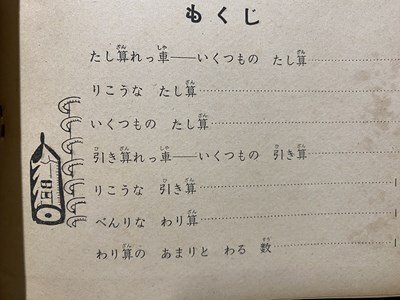 もくじ
たし算れっ車――いくつもの たし算
りこうな たし算
いくつもの たし算
引き算れっ車――いくつもの 引き算
りこうな 引き算
べんりな わり算
わり算の あまりと わる 数